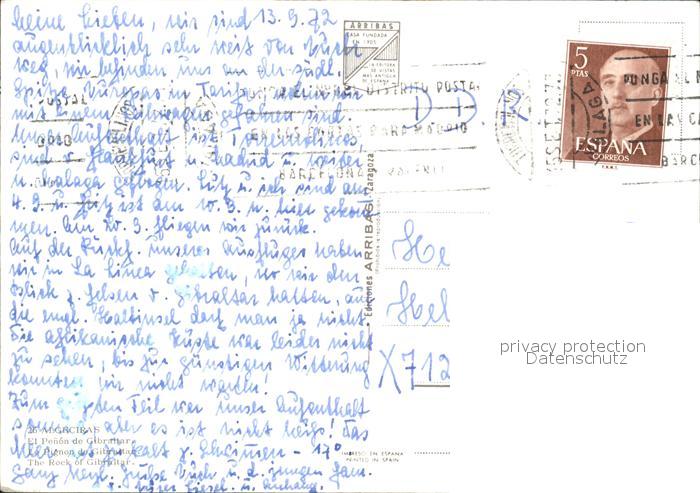 Meine Lieben, wir sind 13.9.72
augenblicklich sehr weit von Euch
weg, wir befinden uns an der südl.
Spitze Europas in Tarifa, wohin wir
mit einem Leihwagen gefahren sind.
Unser Aufenthalt ist Torremolinos,
sind v. Frankfurt n. Madrid u. weiter
n. Malaga geflogen. Lutz u. ich sind am
4. 9. u. ist am 10. 9. n. hier gekom
men. Am 20. 9. fliegen wir zurück.
Auf der Rückf. unseres Ausfluges haben
wir in La Linea gehalten, wo wir den
Blick z. Felsen v. Gibraltar hatten, auf
die engl. Halbinsel darf man ja nicht.
Die afrikanische Küste war leider nicht
zu sehen, bis zur günstigen Witterung
konnten wir nicht warten!
Zum größten Teil war unser Aufenthalt
aber es ist nicht heiß! Das
Meer ist z. Schwimmen - 17°
Ganz herzl. Grüße Euch u. d. jungen Fam.
Eure Liesel. u. Anhang.
26 ALGECIRAS
El Peñón de Gibraltar.
Le Pignon de Gibraltar.
The Rock of Gibraltar.
ARRIBAS
CASA FUNDADA
EN 1905
LA EDITORA
DE VISTAS
MAS ANTIGUA
DE ESPAÑA
Ediciones ARRIBAS - Zaragoza
IMPRESO EN ESPAÑA
PRINTED IN SPAIN
DISTRITO POSTAL
PARA MADRID
BARCELONA
VALENCI
D
He
Hel
X712
5
PTAS
ESPAÑA
CORREOS
F.N.M.T.
MALAGA
PONGA EL N
EN LAS CA
BARC
privacy protection
Datenschutz